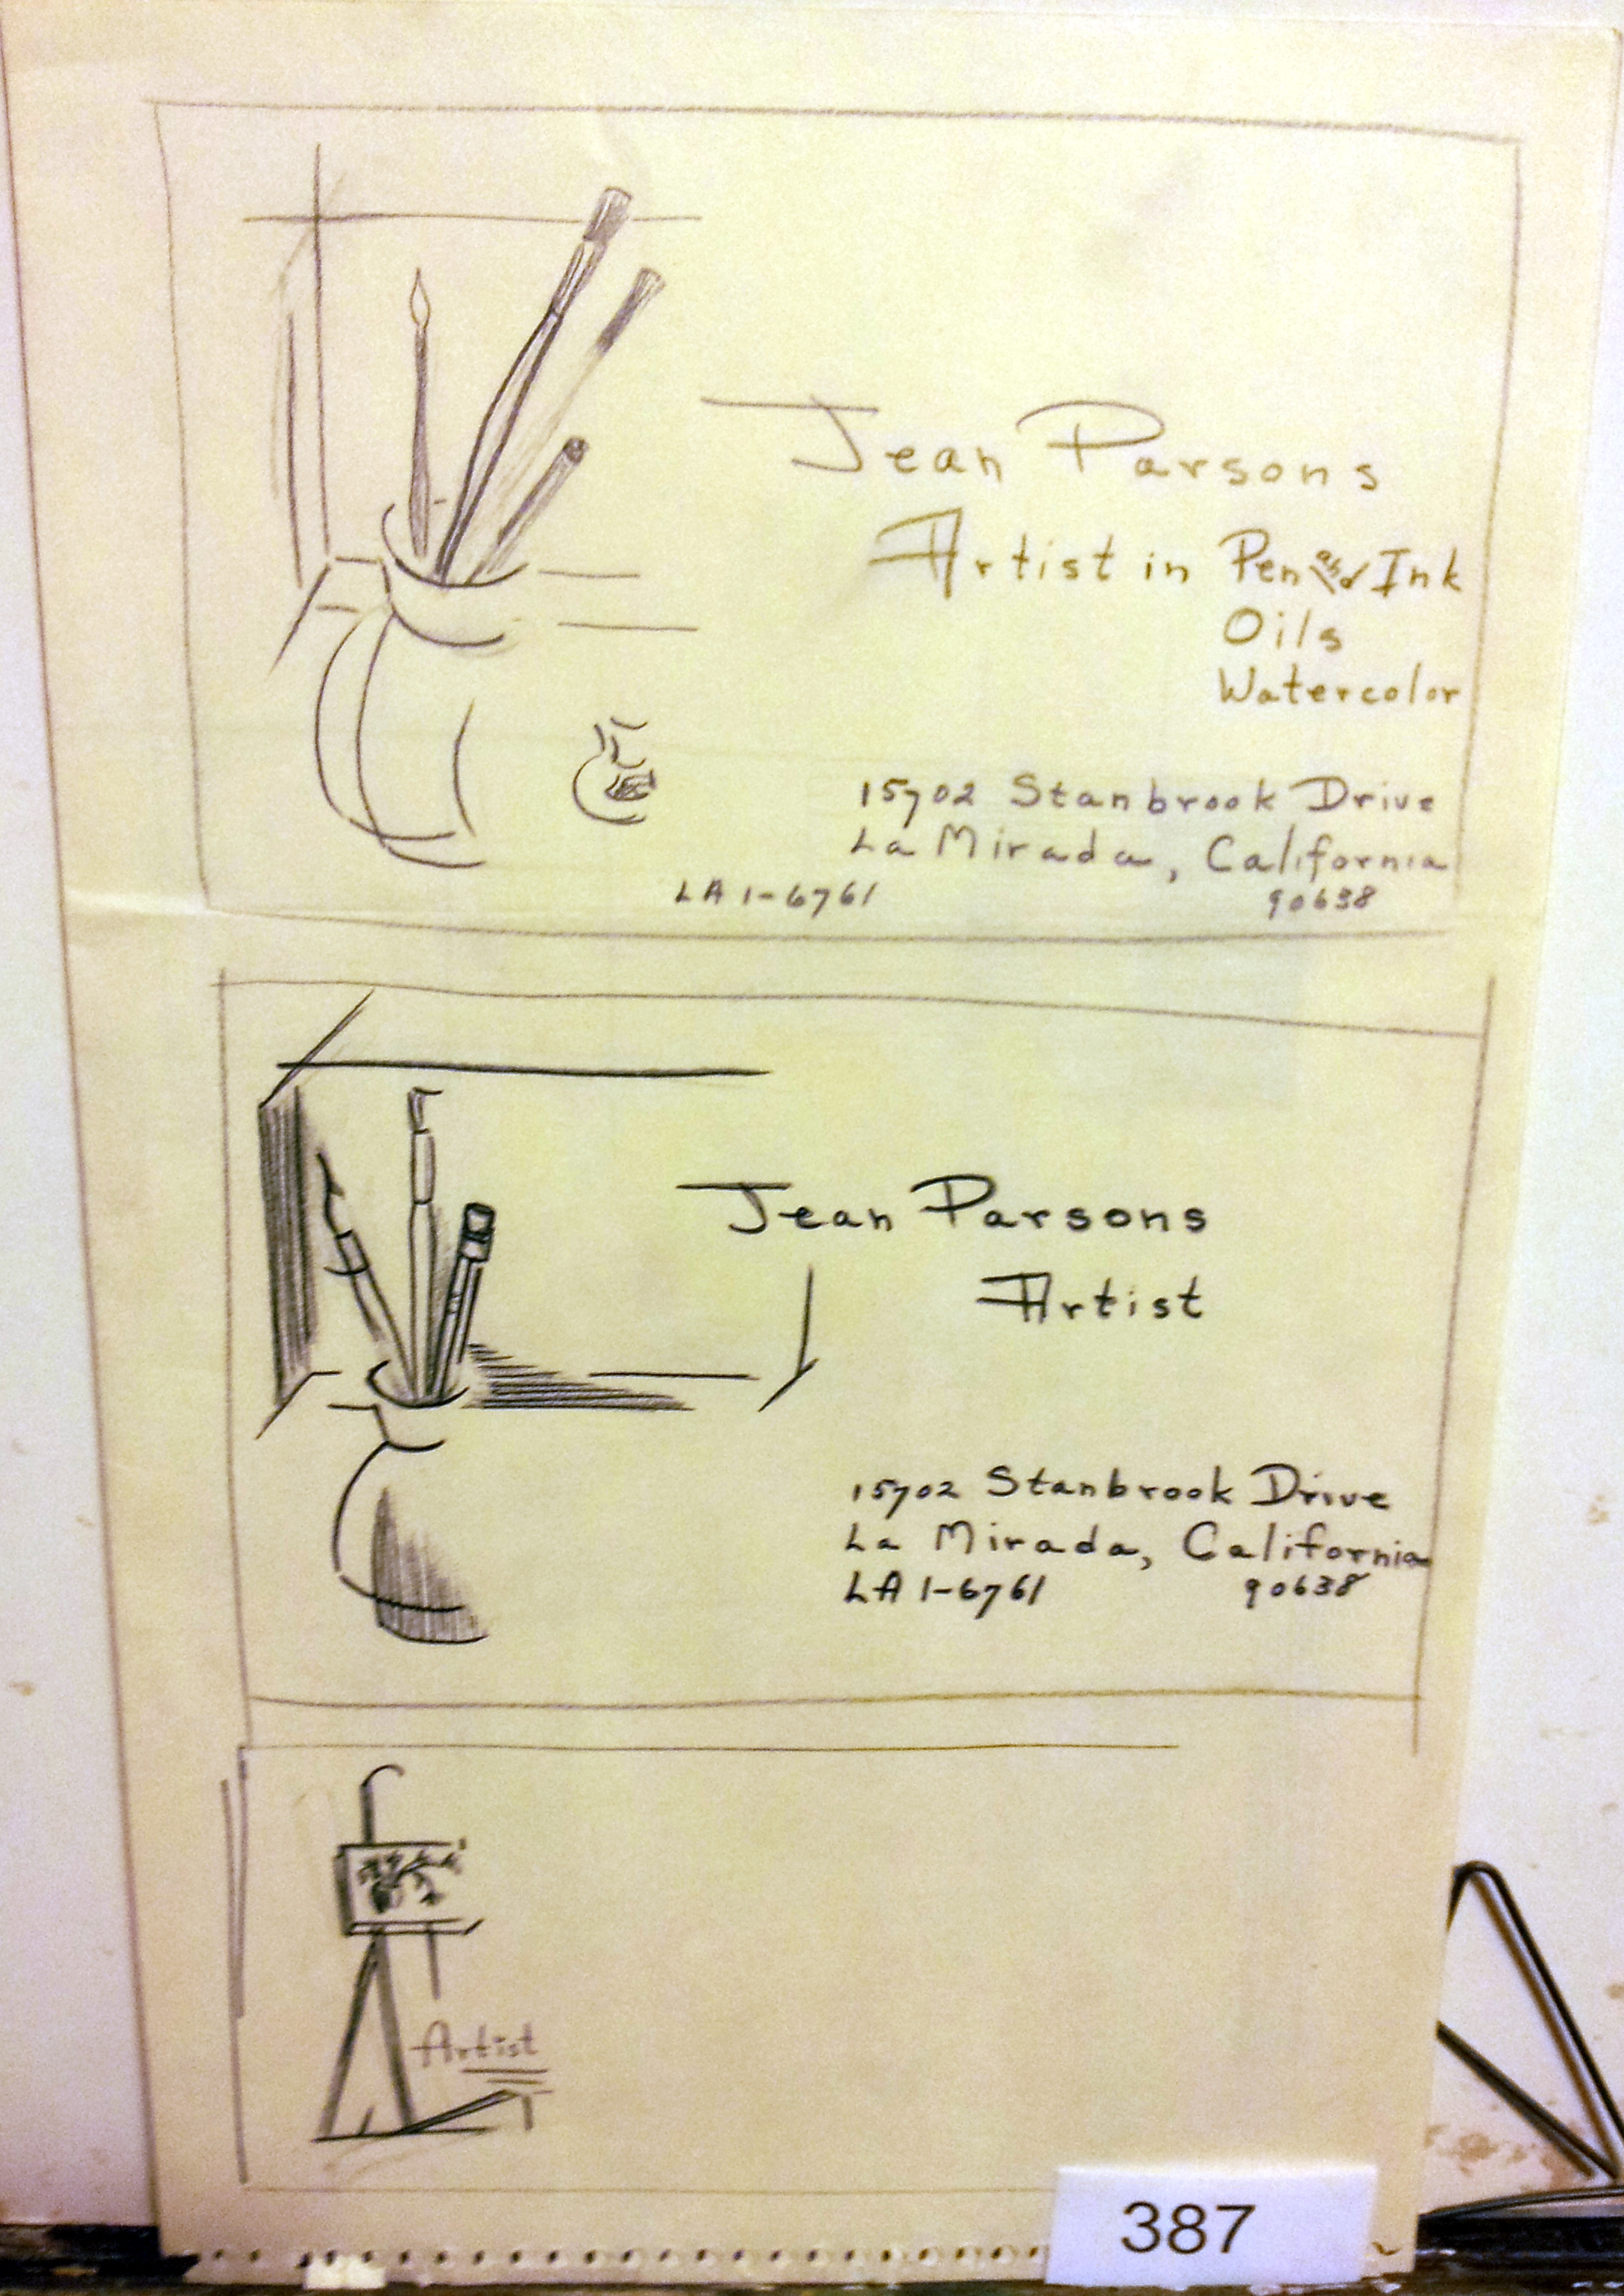 Jean Parsons
Artist in Pen and Ink
Oils
Watercolor
15702 Stanbrook Drive
La Mirada, California
LA 1-6761 90638
Jean Parsons
Artist
15702 Stanbrook Drive
La Mirada, California
LA 1-6761 90638
Artist
387